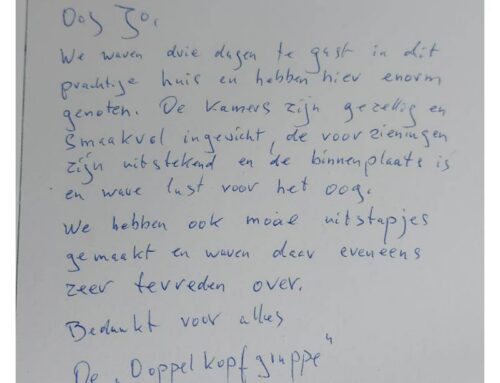 We waren drie dagen te gast in dit
prachtige huis en hebben hier enorm
genoten. De Kamers zijn gezellig en
smaakvol ingericht, de voorzieningen
zijn uitstekend en de binnenplaats is
en ware lust voor het oog.
We hebben ook mooie uitstapjes
gemaakt en waren daar eveneens
zeer tevreden over.
Bedankt voor alles
De „Doppelkopfgruppe"